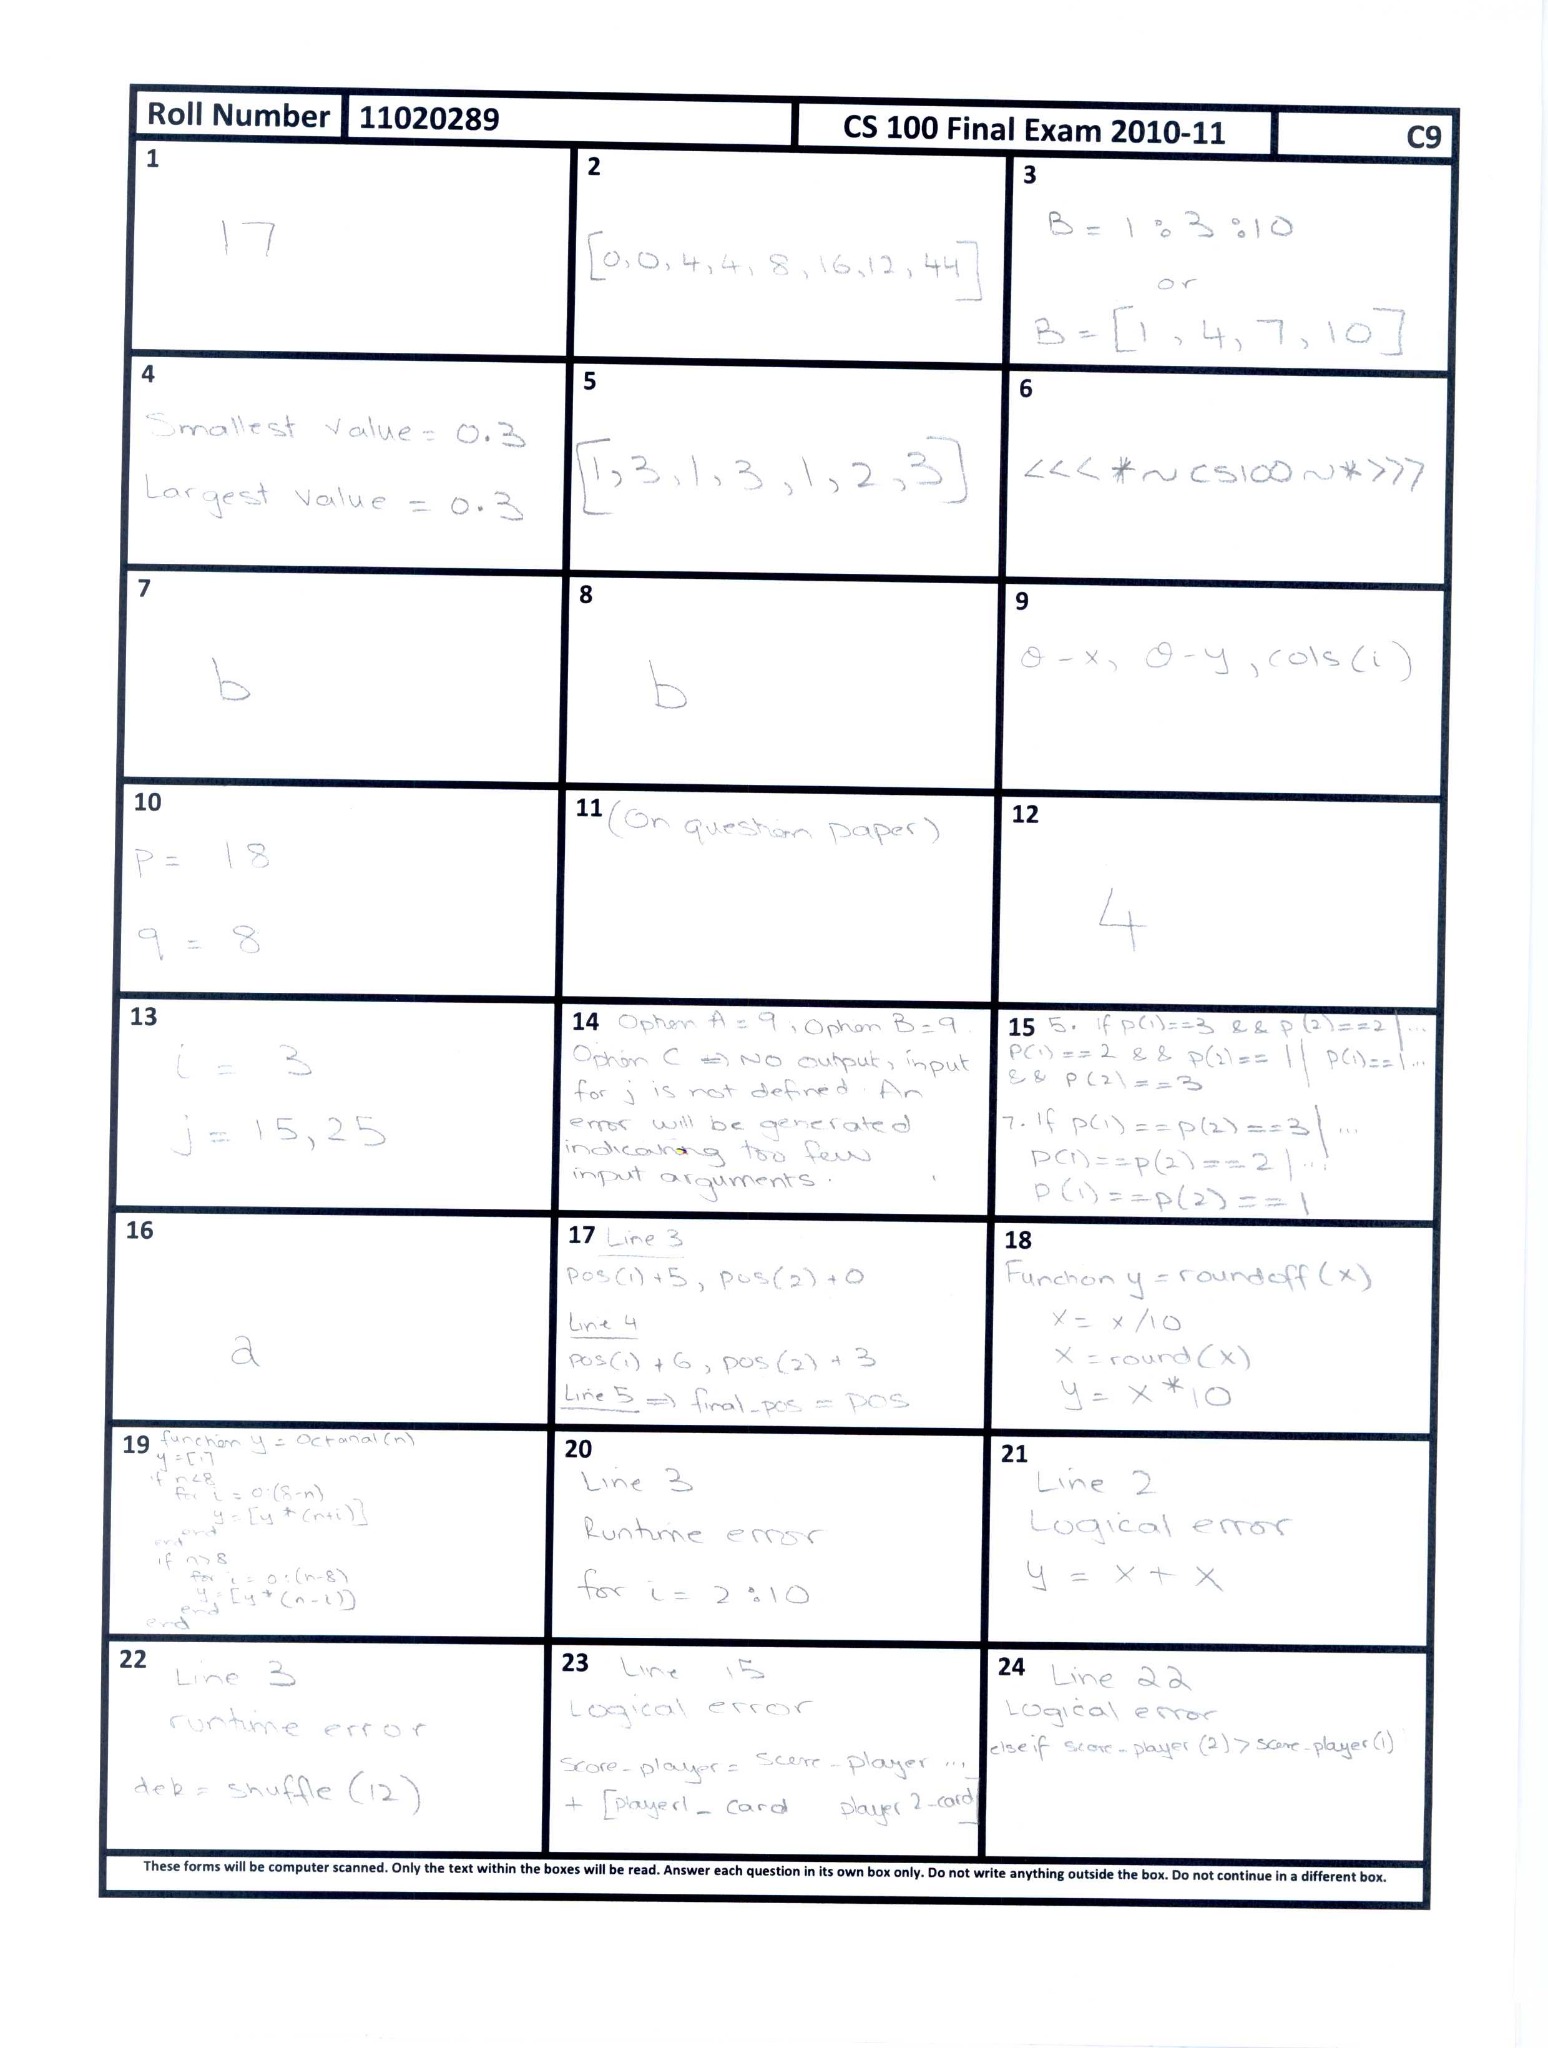 Roll Number 11020289 CS 100 Final Exam 2010-11 C9
1
17
2
[0,0,4,4,8,16,12,44]
3
B = 1:3:10
or
B = [1,4,7,10]
4
Smallest value = 0.3
Largest value = 0.3
5
[1,3,1,3,1,2,3]
6
<<<*~CS100~*>>>
7
b
8
b
9
θ-x, θ-y, cols(i)
10
p = 18
q = 8
11 (On question paper)
12
4
13
i = 3
j = 15,25
14 Option A = 9, Option B = 9.
Option C => No output, input
for j is not defined. An
error will be generated
indicating too few
input arguments.
15 5. If p(1)==3 && p(2)==2|...
p(1)==2 && p(2)==1| p(1)==1...
&& p(2)==3
7. If p(1)==p(2)==3|...
p(1)==p(2)==2|...
p(1)==p(2)==1
16
a
17 Line 3
pos(1)+5, pos(2)+0
Line 4
pos(1)+6, pos(2)+3
Line 5 => final_pos = pos
18
Function y = roundoff(x)
x = x/10
x = round(x)
y = x*10
19 function y = octanal(n)
y=[1]
if n<8
for i = 0:(8-n)
y=[y*(n+i)]
end
end
if n>8
for i = 0:(n-8)
y=[y*(n-i)]
end
end
20
Line 3
Runtime error
for i = 2:10
21
Line 2
Logical error
y = x + x
22
Line 3
runtime error
dek = shuffle(12)
23 Line 15
Logical error
score-player = score-player ...
+ [player1_card player2-card]
24 Line 22
Logical error
elseif score-player(2)>score-player(1)
These forms will be computer scanned. Only the text within the boxes will be read. Answer each question in its own box only. Do not write anything outside the box. Do not continue in a different box.